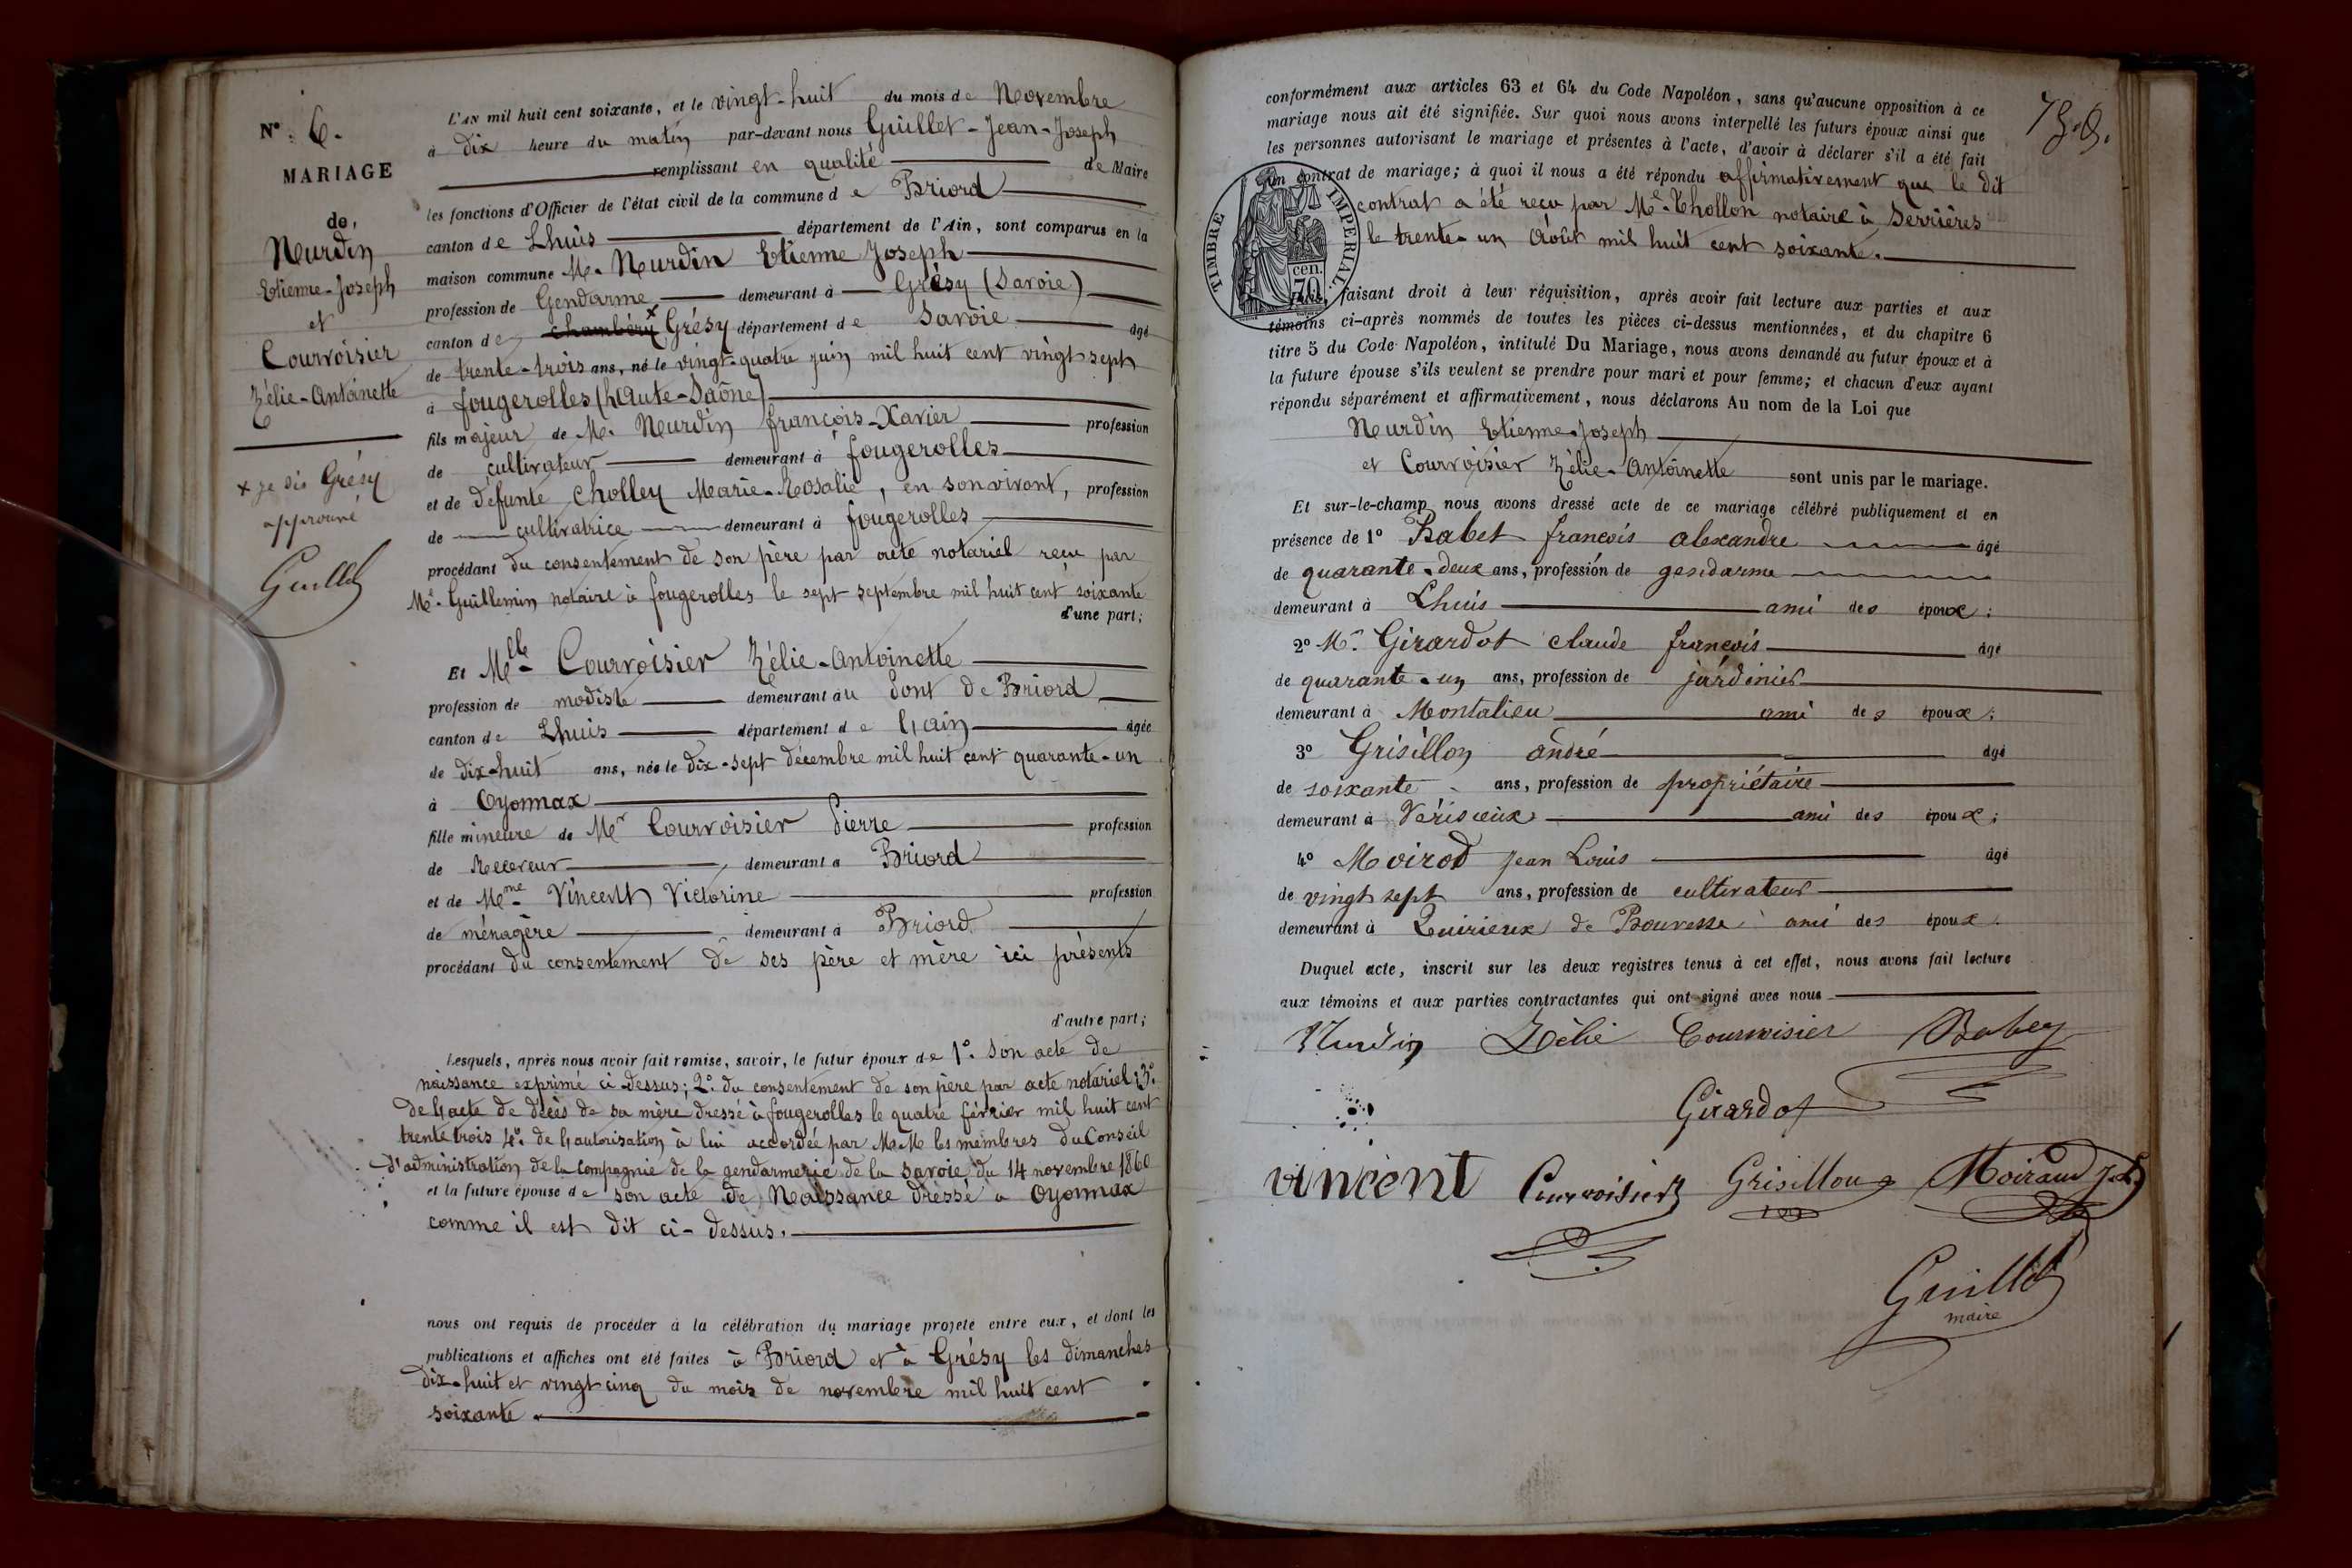 N° 6.
MARIAGE
de
Nurdin
Etienne-Joseph
et
Courvoisier
Zélie-Antoinette
x je dis Grésy
approuvé
Guillet
L'AN mil huit cent soixante, et le vingt-huit du mois de Novembre
à dix heure du matin par-devant nous Guillet-Jean-Joseph
remplissant en qualité de Maire
les fonctions d'Officier de l'état civil de la commune de Briord
canton de Lhuis département de l'Ain, sont comparus en la
maison commune M. Nurdin Etienne Joseph
profession de Gendarme demeurant à Grésy (Savoie)
canton de chambéry x Grésy département de Savoie âgé
de trente-trois ans, né le vingt-quatre juin mil huit cent vingt sept
à fougerolles (hAute-Saône)
fils majeur de M. Nurdin françois-Xavier profession
de cultivateur demeurant à fougerolles
et de défunte Cholley Marie-Rosalie, en son vivant, profession
de cultivatrice demeurant à fougerolles
procédant du consentement de son père par acte notariel reçu par
Me. Guillemin notaire à fougerolles le sept septembre mil huit cent soixante
d'une part;
Et Melle Courvoisier Zélie-Antoinette
profession de modiste demeurant au Pont de Briord
canton de Lhuis département de l'ain âgée
de dix-huit ans, née le dix-sept décembre mil huit cent quarante-un
à Oyonnax
fille mineure de Mr Courvoisier Pierre profession
de Receveur demeurant à Briord
et de Mme Vincent Victorine profession
de ménagère demeurant à Briord
procédant du consentement de ses père et mère ici présents
d'autre part;
Lesquels, après nous avoir fait remise, savoir, le futur époux de 1°. Son acte de
naissance exprimé ci-dessus; 2°. du consentement de son père par acte notariel; 3°.
de l'acte de décès de sa mère dressé à fougerolles le quatre février mil huit cent
trente trois 4°. de l'autorisation à lui accordée par M.M les membres du Conseil
d'administration de la compagnie de la gendarmerie de la Savoie du 14 novembre 1860
et la future épouse de son acte de Naissance dressé à Oyonnax
comme il est dit ci-dessus.
nous ont requis de procéder à la célébration du mariage projeté entre eux, et dont les
publications et affiches ont été faites à Briord et à Grésy les dimanches
dix-huit et vingt cinq du mois de novembre mil huit cent
soixante.
conformément aux articles 63 et 64 du Code Napoléon, sans qu'aucune opposition à ce
mariage nous ait été signifiée. Sur quoi nous avons interpellé les futurs époux ainsi que
les personnes autorisant le mariage et présentes à l'acte, d'avoir à déclarer s'il a été fait
un contrat de mariage; à quoi il nous a été répondu affirmativement que le dit
contrat a été reçu par Me. Thollon notaire à Serrières
le trente-un Août mil huit cent soixante.
TIMBRE IMPÉRIAL
70 cen.
faisant droit à leur réquisition, après avoir fait lecture aux parties et aux
témoins ci-après nommés de toutes les pièces ci-dessus mentionnées, et du chapitre 6
titre 5 du Code Napoléon, intitulé Du Mariage, nous avons demandé au futur époux et à
la future épouse s'ils veulent se prendre pour mari et pour femme; et chacun d'eux ayant
répondu séparément et affirmativement, nous déclarons Au nom de la Loi que
Nurdin Etienne-Joseph
et Courvoisier Zélie-Antoinette sont unis par le mariage.
Et sur-le-champ nous avons dressé acte de ce mariage célébré publiquement et en
présence de 1° Babet françois alexandre âgé
de quarante-deux ans, profession de gendarme
demeurant à Lhuis ami des époux;
2° Mr. Girardot claude françois âgé
de quarante-un ans, profession de jardinier
demeurant à Montalieu ami des époux;
3° Grisillon andré âgé
de soixante ans, profession de propriétaire
demeurant à Vérisieux ami des époux;
4° Moirod Jean Louis âgé
de vingt sept ans, profession de cultivateur
demeurant à Quirieux de Bouvesse ami des époux.
Duquel acte, inscrit sur les deux registres tenus à cet effet, nous avons fait lecture
aux témoins et aux parties contractantes qui ont signé avec nous
Nurdin Zélie Courvoisier Babey
Girardot
vincent Courvoisier Grisillon Moiraud J.L.
Guillet
maire